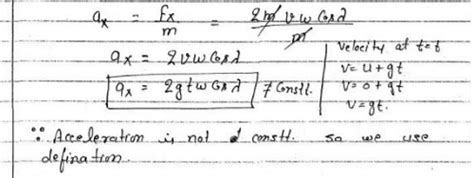 a_x = f_x/m = 2m v ω Cosλ / m
a_x = 2vω Cosλ
a_x = 2gtω Cosλ ≠ Constt.
Velocity at t=t
V= u+gt
V= 0+gt
V=gt.
∵ Acceleration is not constt. so we use
defination.